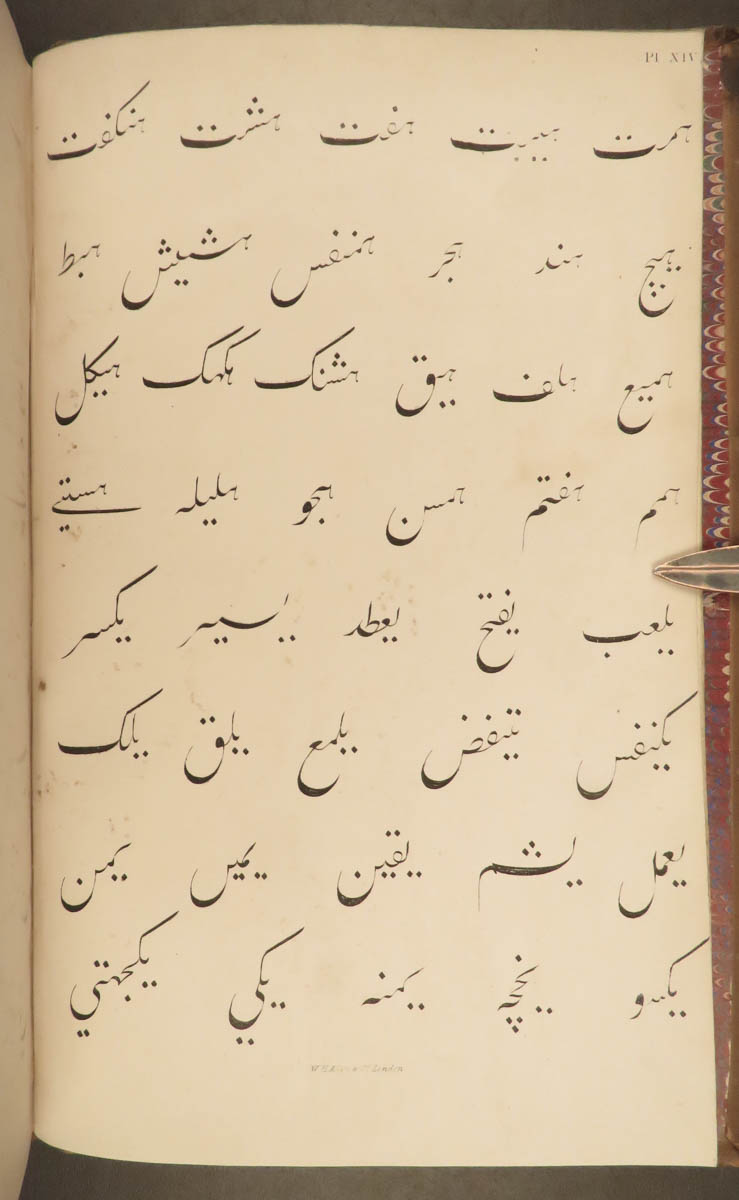 Pl XIV
همرت هیبت هفت هشت هنکفت
هیچ هند هجر همنفس هشیش هبط
همیع هلف هیق هشنک هکهک هیکل
همم هفتم همسن هجو هلیله هستی
یلعب یفتح یعطر یسیر یکسر
یکنفس یلمع یلق یلک
یعمل یشم یقین یمین یمن
یکسو یخچه یمنه یکی یکجهتی
London